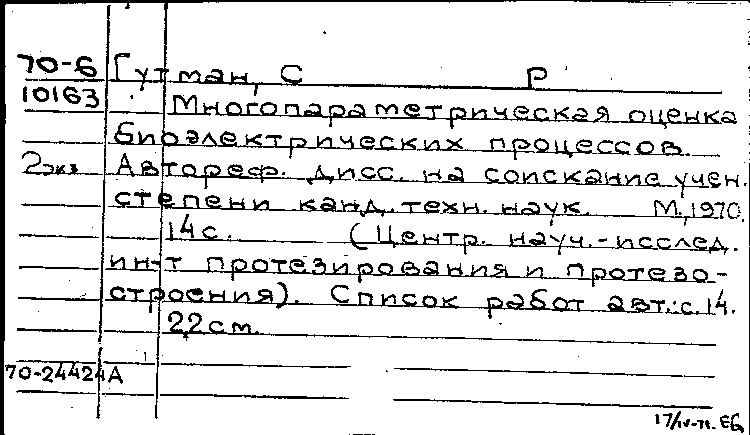 70-6 Гутман, С Р
10163 Многопараметрическая оценка
биоэлектрических процессов.
2 экз Автореф. дисс. на соискание учен.
степени канд. техн. наук. М., 1970.
14 с. (Центр. науч.-исслед.
ин-т протезирования и протезо-
строения). Список работ авт.: с. 14.
22 см.
70-24424А
17/IV-71. ЕБ